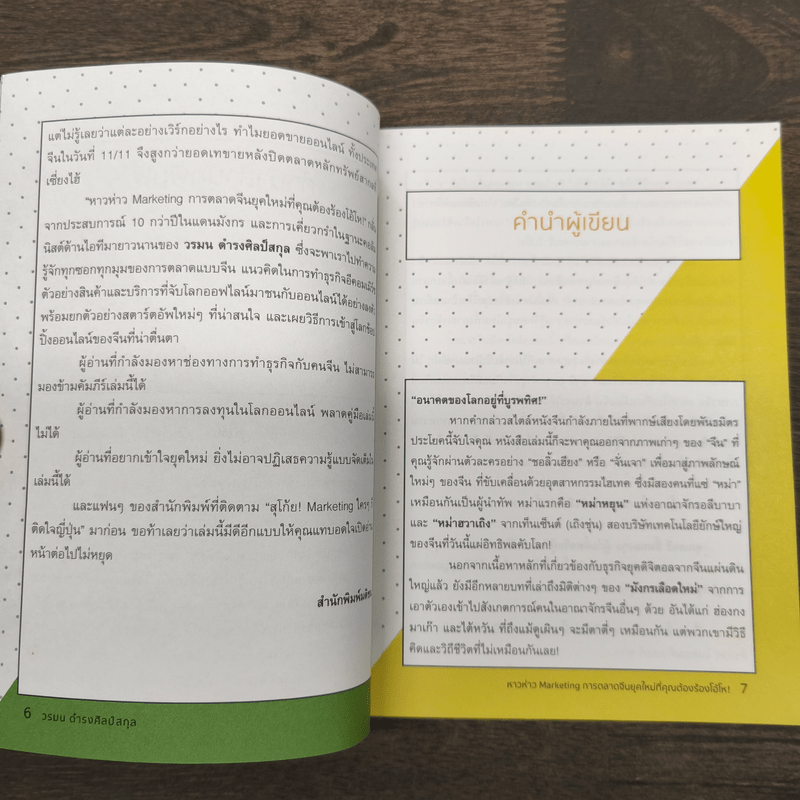 แต่ไม่รู้เลยว่าแต่ละอย่างเวิร์กอย่างไร ทำไมยอดขายออนไลน์
จีนในวันที่ 11/11 จึงสูงกว่ายอดเทขายหลังปิดตลาดหลักทรัพย์
เซี่ยงไฮ้
"หาวห่าว Marketing การตลาดจีนยุคใหม่ที่คุณต้องร้องโอ้โห!"
จากประสบการณ์ 10 กว่าปีในแดนมังกร และการเคี่ยวกรำในฐานะ
นิสต์ด้านไอทีมายาวนานของ วรมน ดำรงศิลป์สกุล ซึ่งจะพาเราไปทำความ
รู้จักทุกซอกทุกมุมของการตลาดแบบจีน แนวคิดในการทำธุรกิจอีคอมเมิร์ซ
ตัวอย่างสินค้าและบริการที่จับโลกออฟไลน์มาชนกับออนไลน์ได้อย่าง
พร้อมยกตัวอย่างสตาร์ตอัพใหม่ๆ ที่น่าสนใจ และเผยวิธีการเข้าสู่โลกช้อป
ปิ้งออนไลน์ของจีนที่น่าตื่นตา
ผู้อ่านที่กำลังมองหาช่องทางการทำธุรกิจกับคนจีน ไม่สามารถ
มองข้ามคัมภีร์เล่มนี้ได้
ผู้อ่านที่กำลังมองหาการลงทุนในโลกออนไลน์ พลาดคู่มือเล่มนี้
ไม่ได้
ผู้อ่านที่อยากเข้าใจยุคใหม่ ยิ่งไม่อาจปฏิเสธความรู้แบบจัดเต็มใน
เล่มนี้ได้
และแฟนๆ ของสำนักพิมพ์ที่ติดตาม "สุโก้ย! Marketing ใครๆ ก็
ติดใจญี่ปุ่น" มาก่อน ขอท้าเลยว่าเล่มนี้มีดีอีกแบบให้คุณแทบอดใจเปิดอ่าน
หน้าต่อไปไม่หยุด
สำนักพิมพ์
6 วรมน ดำรงศิลป์สกุล
คำนำผู้เขียน
"อนาคตของโลกอยู่ที่บูรพทิศ!"
หากคำกล่าวสไตล์หนังจีนกำลังภายในที่พากษ์เสียงโดยพันธมิตร
ประโยคนี้จับใจคุณ หนังสือเล่มนี้ก็จะพาคุณออกจากภาพเก่าๆ ของ "จีน" ที่
คุณรู้จักผ่านตัวละครอย่าง "ชอลิ้วเฮียง" หรือ "จั่นเจา" เพื่อมาสู่ภาพลักษณ์
ใหม่ๆ ของจีน ที่ขับเคลื่อนด้วยอุตสาหกรรมไฮเทค ซึ่งมีสองคนที่แซ่ "หม่า"
เหมือนกันเป็นผู้นำทัพ หม่าแรกคือ "หม่าหยุน" แห่งอาณาจักรอลีบาบา
และ "หม่าฮวาเถิง" จากเท็นเซ็นต์ (เถิงซุ่น) สองบริษัทเทคโนโลยียักษ์ใหญ่
ของจีนที่วันนี้แผ่อิทธิพลคับโลก!
นอกจากเนื้อหาหลักที่เกี่ยวข้องกับธุรกิจยุคดิจิตอลจากจีนแผ่นดิน
ใหญ่แล้ว ยังมีอีกหลายบทที่เล่าถึงมิติต่างๆ ของ "มังกรเลือดใหม่" จากการ
เอาตัวเองเข้าไปสังเกตการณ์คนในอาณาจักรจีนอื่นๆ ด้วย อันได้แก่ ฮ่องกง
มาเก๊า และไต้หวัน ที่ถึงแม้ดูเผินๆ จะมีตาตี่ๆ เหมือนกัน แต่พวกเขามีวิธี
คิดและวิถีชีวิตที่ไม่เหมือนกันเลย!
หาวห่าว Marketing การตลาดจีนยุคใหม่ที่คุณต้องร้องโอ้โห! 7